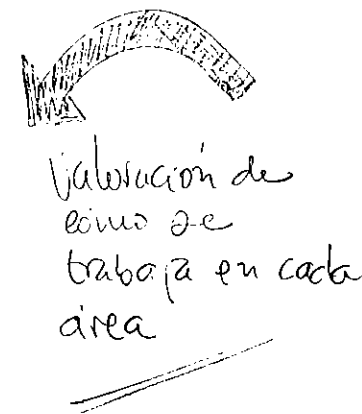 Valoración de
cómo se
trabaja en cada
área